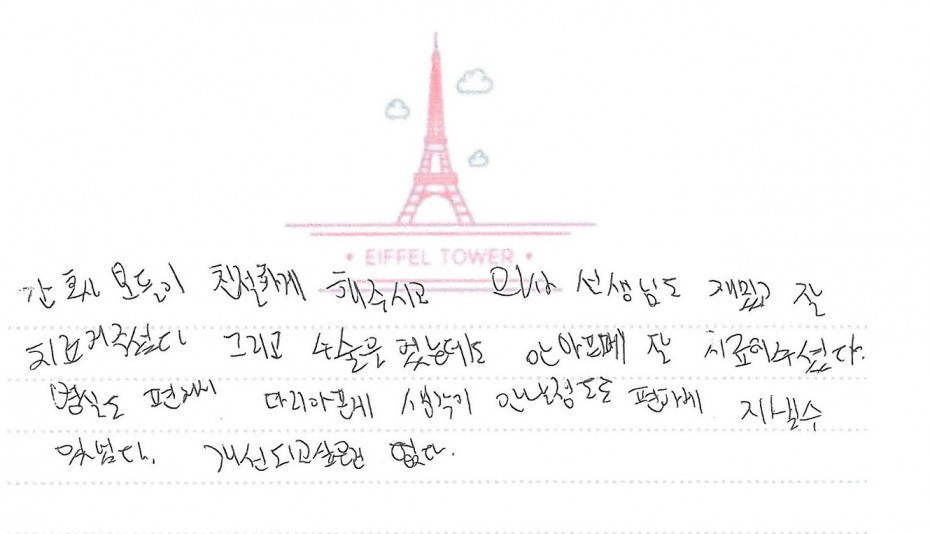 • EIFFEL TOWER •
간호사 분들이 친절하게 해주시고 의사 선생님도 재밌고 잘
치료해주셨다 그리고 수술은 했는데도 안아프게 잘 치료해주셨다.
병실도 편해서 다리아픈게 생각이 안날정도로 편하게 지낼수
있었다. 개선되고싶은건 없다.